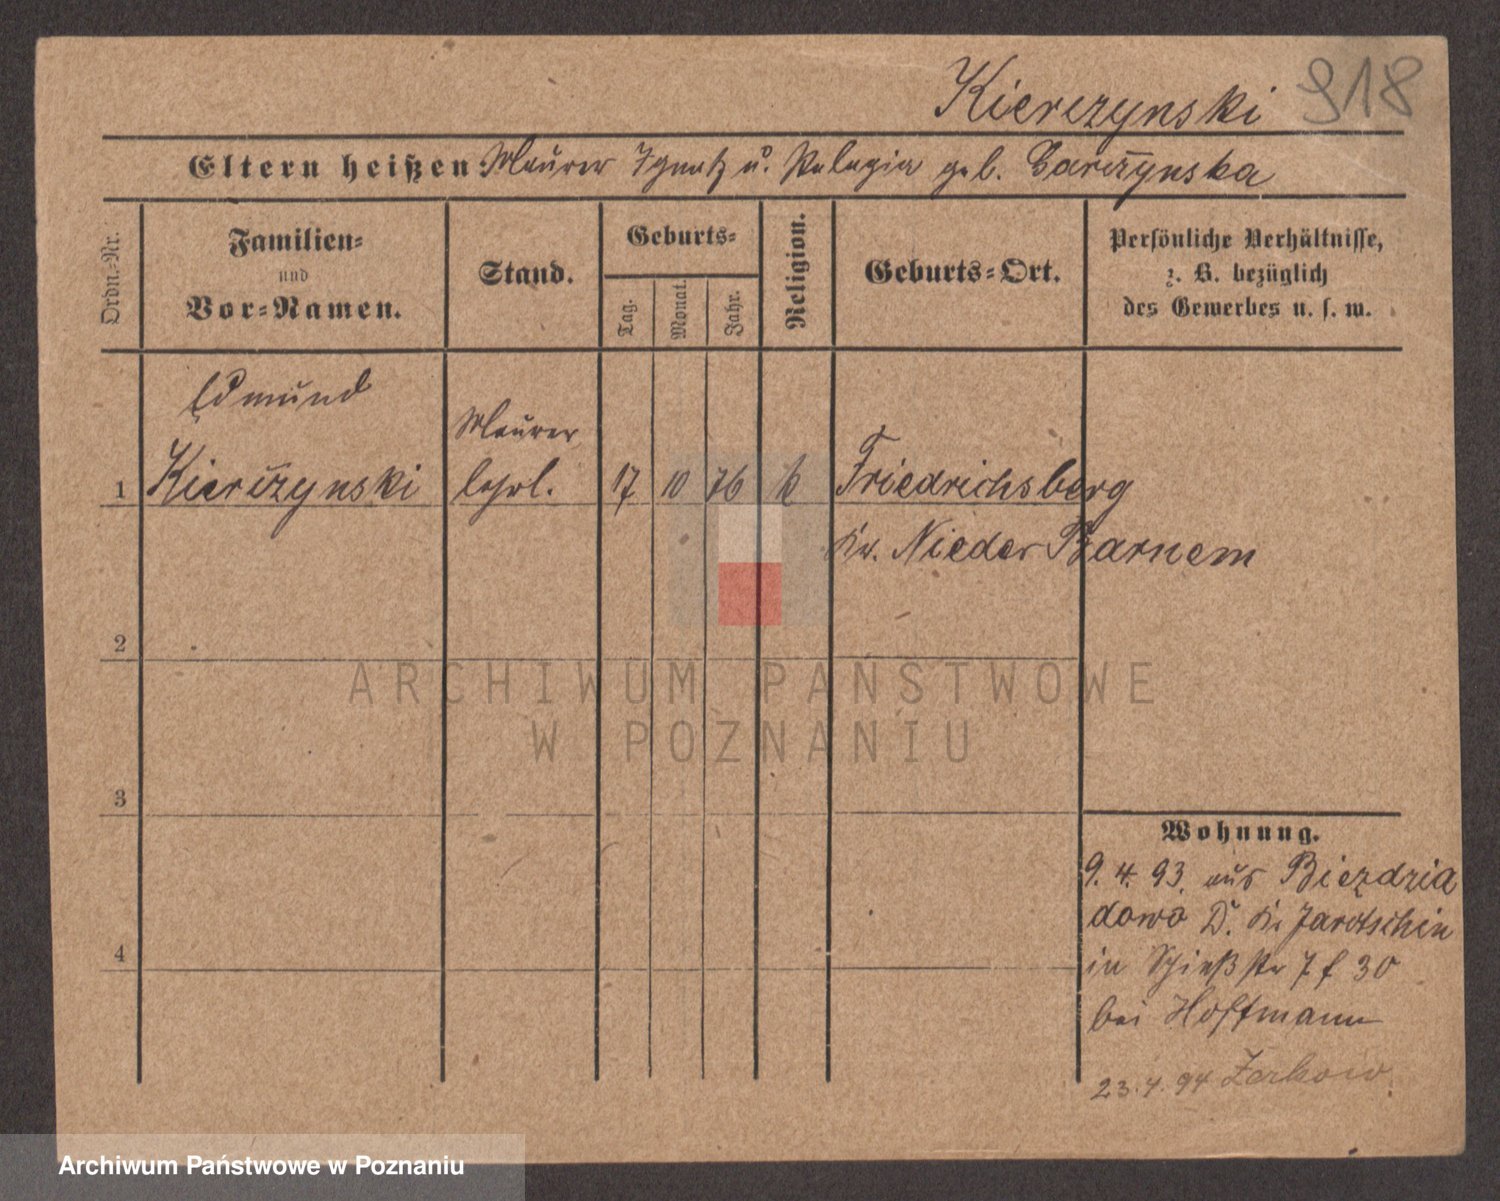 Kierczynski 918
Eltern heißen: Maurer Ignatz u. Pelagia geb. Garczynska
Ordn.-Nr.
Familien-
und
Vor-Namen.
Stand.
Geburts-
Tag.
Monat.
Jahr.
Religion.
Geburts-Ort.
Persönliche Verhältnisse,
z. B. bezüglich
des Gewerbes u. s. w.
Edmund
Maurer
1 Kierczynski lehrl. 17 10 76 k Friedrichsberg
Kr. Nieder Barnem
2
3
4
ARCHIWUM PAŃSTWOWE
W POZNANIU
Wohnung.
9. 4. 93. aus Biezdzia
dowo D. Kr Jarotschin
in Schießstr 7 f 30
bei Hoffmann
23. 4. 94 Zerkow.
Archiwum Państwowe w Poznaniu